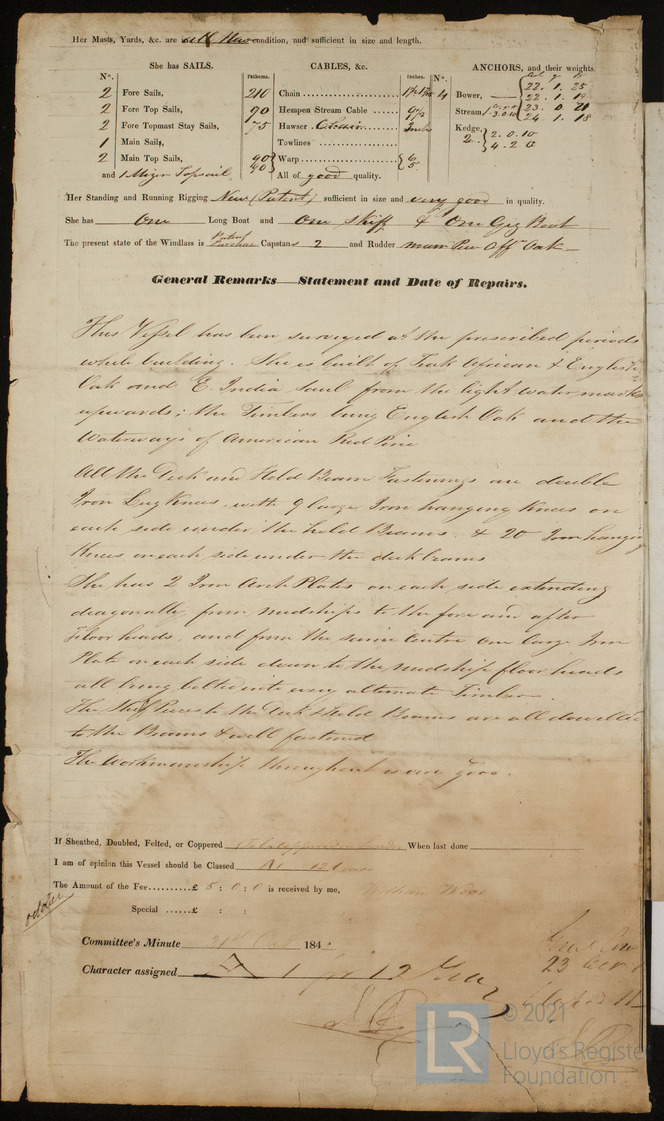 Her Masts, Yards, &c. are all New condition, and sufficient in size and length.
She has SAILS. CABLES, &c. ANCHORS, and their weights.
N°. Fathoms. Inches. N°.
2 Fore Sails, 210 Chain 4
2 Fore Top Sails, 90 Hempen Stream Cable
2 Fore Topmast Stay Sails, 75 Hawser
1 Main Sails, Towlines
2 Main Top Sails, 90 90 Warp 6 5
and 1 Mizen Topsail All of good quality.
Bower, 22. 1. 25
22. 1. 14
Stream 23. 0 21
24 1. 18
Kedge, 2 2. 0. 10
4. 2. 0
Her Standing and Running Rigging New (Patent) sufficient in size and very good in quality.
She has One Long Boat and One Skiff & One Gig Boat
The present state of the Windlass is Patent Purchase Capstans 2 and Rudder Oak
General Remarks—Statement and Date of Repairs.
This Vessel has been surveyed at the prescribed periods
while building. She is built of Teak African & English
Oak and E. India Saul from the light water mark
upwards; the Timbers being English Oak and the
Waterways of American Red Pine
All the Deck and Hold Beam Fastenings are double
Iron Lug Knees, with 9 large Iron hanging Knees on
each side under the hold Beams & 20 Iron hanging
Knees on each side under the deck beams
She has 2 Iron Arch Plates on each side extending
diagonally from midships to the fore and after
Floor heads, and from the same Centre one large Iron
Plate on each side down to the midship floor heads
all being bolted into every alternate Timber.
The Shelf Pieces to the Deck & Hold Beams are all dowelled
to the Beams & well fastened
The Workmanship throughout is very good.
If Sheathed, Doubled, Felted, or Coppered When last done
I am of opinion this Vessel should be Classed A1 12 Years
The Amount of the Fee..........£ 5 : 0 : 0 is received by me, William Wood
Special ......£ : :
october
Committee's Minute 21st Oct 184
Character assigned A 1 for 12 Years
23
© 2021
LR
Lloyd's Register
Foundation